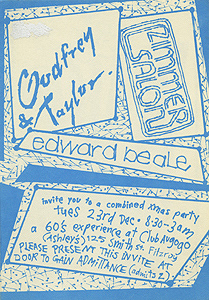 Godfrey
& Taylor.
ZIMMER
SALON
edward beale
invite you to a combined xmas party
tues 23rd Dec • 8.30-3am
a 60's experience at Club Augogo
(Ashley's) 125 Smith St. Fitzroy
PLEASE PRESENT THIS INVITE AT
DOOR TO GAIN ADMITTANCE (admits 2)